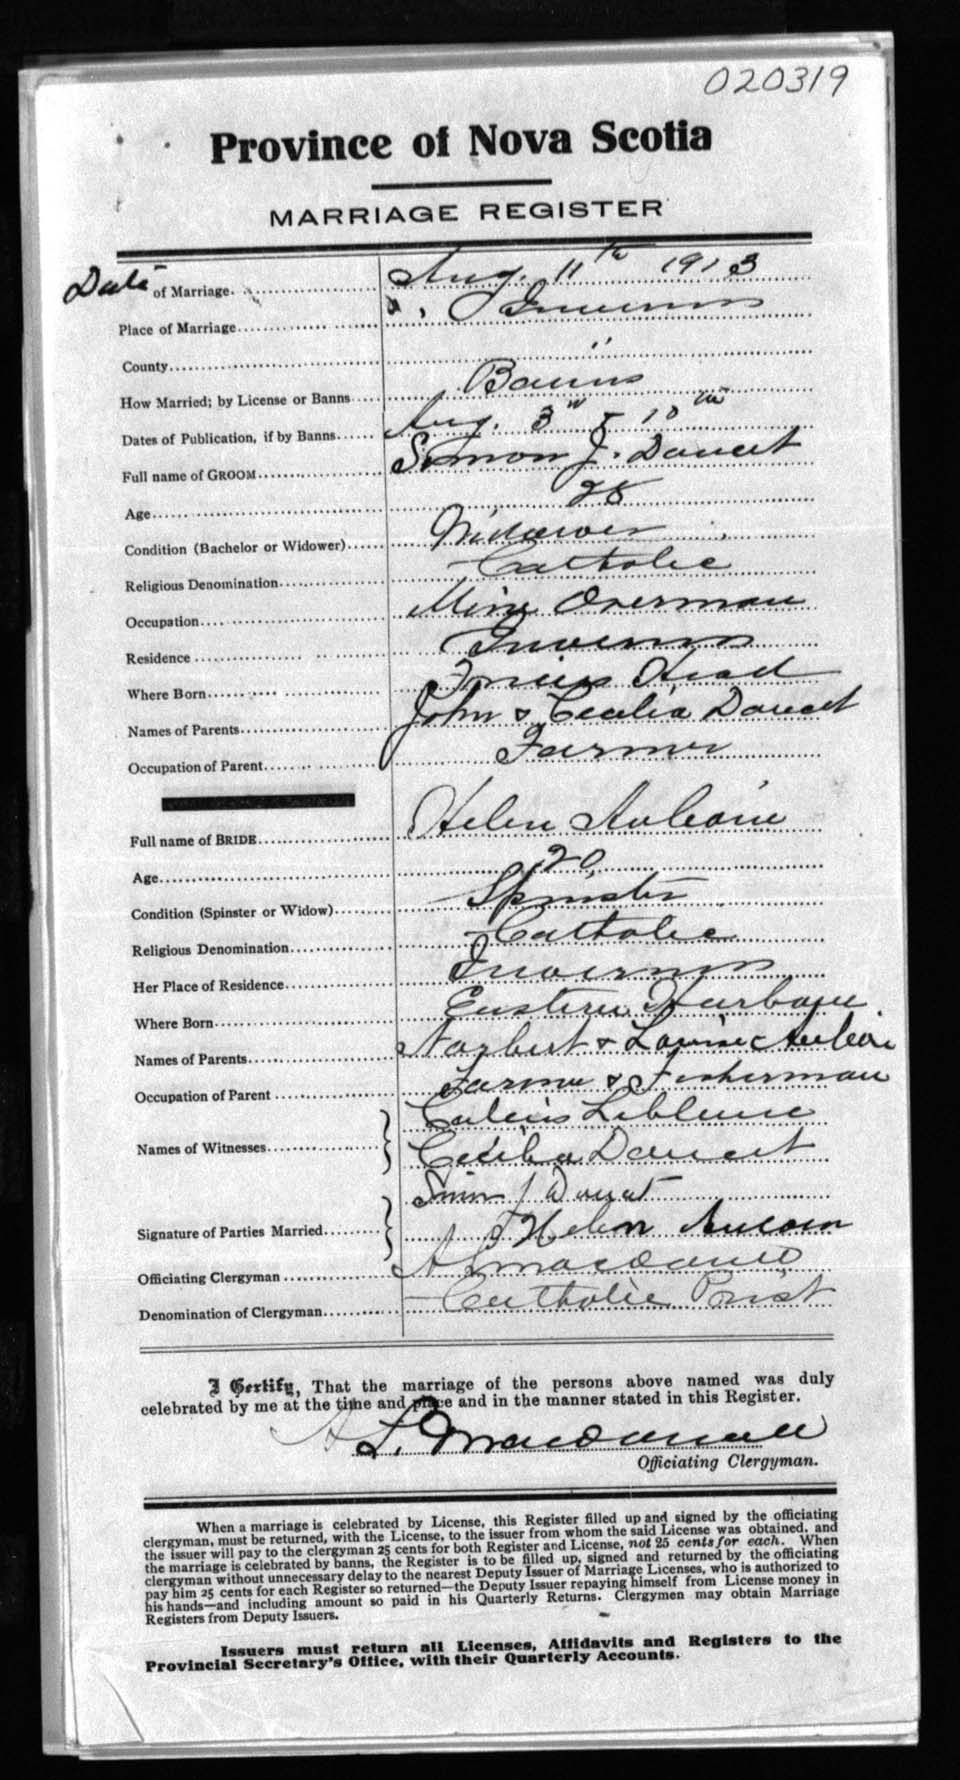 020319
Province of Nova Scotia
MARRIAGE REGISTER
Date of Marriage. Aug. 11th 1913
Place of Marriage Inverness
County "
How Married; by License or Banns Banns
Dates of Publication, if by Banns Aug. 3" & 10th
Full name of GROOM Simon J. Doucet
Age 28
Condition (Bachelor or Widower) Widower
Religious Denomination Catholic
Occupation Mine Overman
Residence Inverness
Where Born Friars Head
Names of Parents John & Cecelia Doucet
Occupation of Parent Farmer
Full name of BRIDE Helen Aucoin
Age 20
Condition (Spinster or Widow) Spinster
Religious Denomination Catholic
Her Place of Residence Inverness
Where Born Eastern Harbour
Names of Parents Norbert & Louise Aucoin
Occupation of Parent Farmer & Fisherman
Names of Witnesses
Leblanc
Cecilia Doucet
Signature of Parties Married
Simon J Doucet
Helen Aucoin
Officiating Clergyman A L Macdonald
Denomination of Clergyman Catholic Priest
I Certify, That the marriage of the persons above named was duly
celebrated by me at the time and place and in the manner stated in this Register.
A L. Macdonald
Officiating Clergyman.
When a marriage is celebrated by License, this Register filled up and signed by the officiating
clergyman, must be returned, with the License, to the issuer from whom the said License was obtained, and
the issuer will pay to the clergyman 25 cents for both Register and License, not 25 cents for each. When
the marriage is celebrated by banns, the Register is to be filled up, signed and returned by the officiating
clergyman without unnecessary delay to the nearest Deputy Issuer of Marriage Licenses, who is authorized to
pay him 25 cents for each Register so returned—the Deputy Issuer repaying himself from License money in
his hands—and including amount so paid in his Quarterly Returns. Clergymen may obtain Marriage
Registers from Deputy Issuers.
Issuers must return all Licenses, Affidavits and Registers to the
Provincial Secretary's Office, with their Quarterly Accounts.